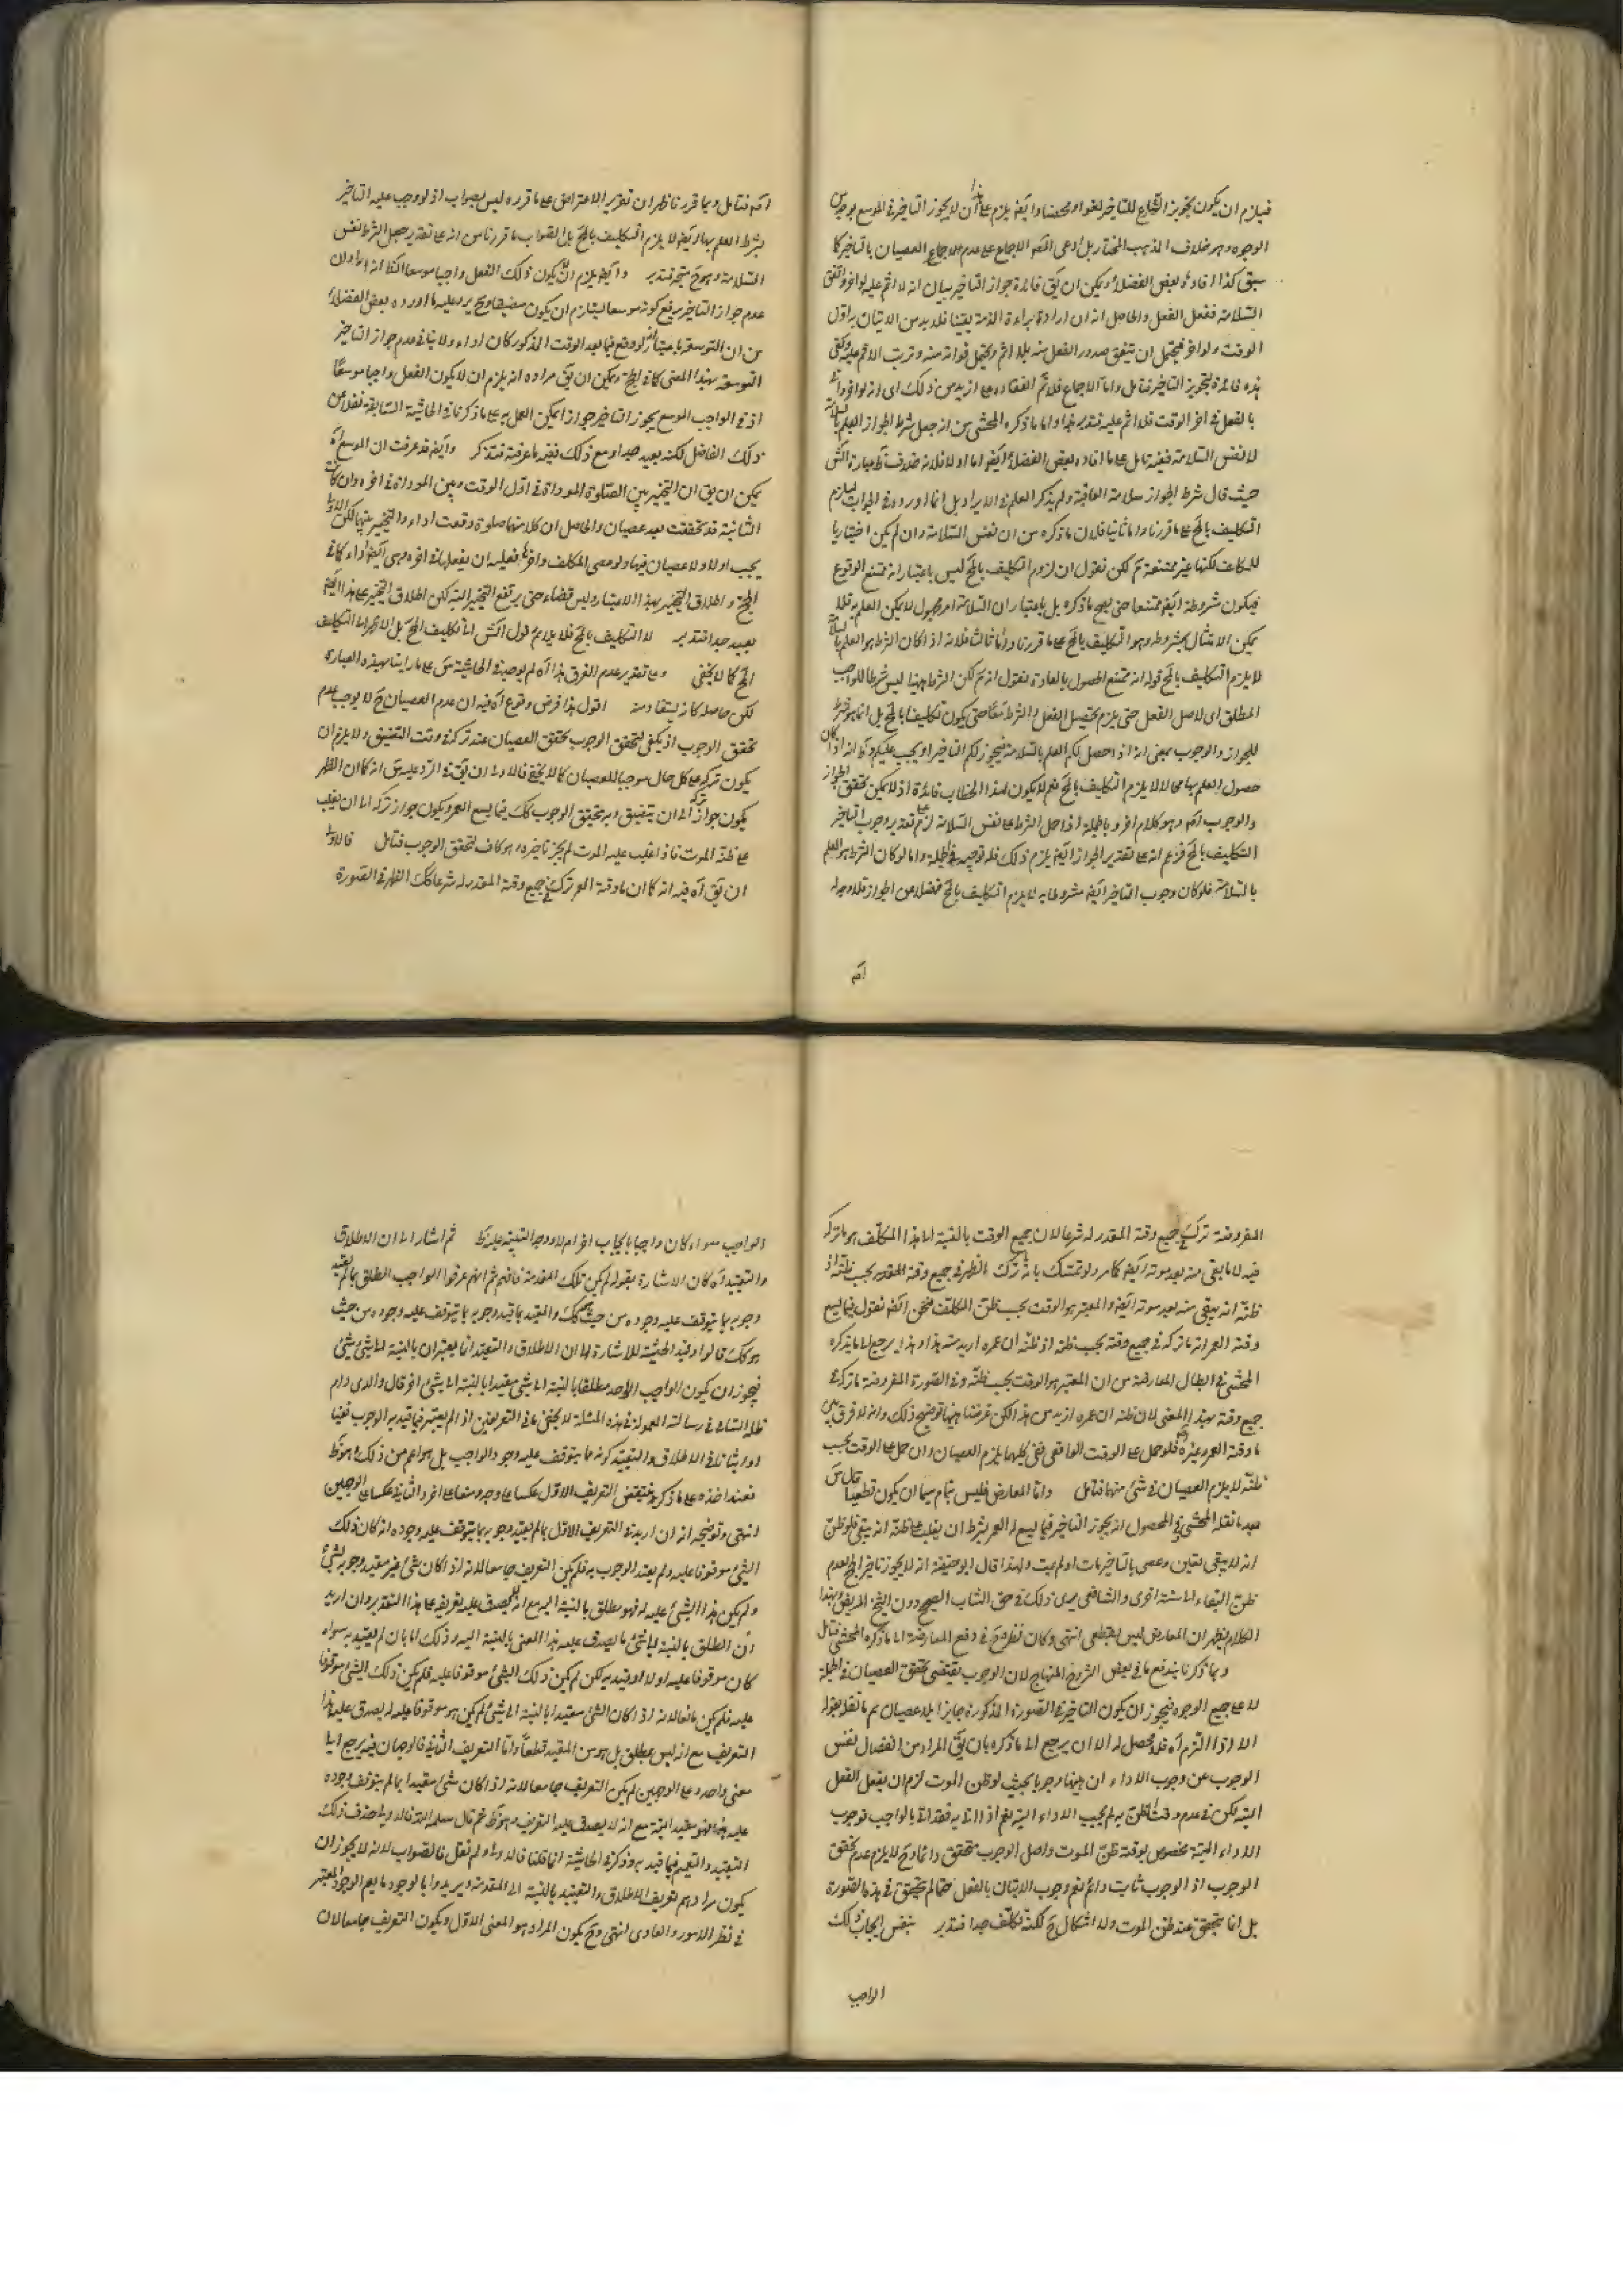 فيلزم ان يكون تجويز الشارع للتأخير لغوا محضا وايضا يلزم على هذا ان لا يجوز التأخير في الموسع بوجه من
الوجوه وهو خلاف المذهب المختار بل ادعى الاجماع على عدم العصيان بالتأخير كما
سبق كذا افاده بعض الفضلاء ويمكن ان يق فائدة جواز التأخير بيان انه لا اثم عليه لو اخر واتفق
السلامة ففعل الفعل والحاصل انه ان اراد براءة الذمة يقينا فلا بد من الاتيان به اول
الوقت ولو اخر فيحتمل ان يتفق صدور الفعل منه بلا اثم ويحتمل فواته منه وترتب الاثم عليه وكفى
هذه فائدة لتجويز التأخير فتامل واما الاجماع فلا نم انعقاده على ازيد من ذلك اى انه لو اخر واتى
بالفعل في اخر الوقت فلا اثم عليه فتدبر واما ما ذكره المحشى من انه جعل شرط الجواز العلم بالسلامة
لا نفس السلامة ففيه تامل على ما افاده بعض الفضلاء ايض اما اولا فلانه خلاف ظ عبارة الش
حيث قال شرط الجواز سلامة العاقبة ولم يذكر العلم في الايراد بل انما اورده في الجواب ليلزم
التكليف بالمح على ما قررنا واما ثانيا فلان ما ذكره من ان نفس السلامة وان لم يكن اختياريا
للمكلف لكنها غير ممتنعة نم لكن نقول ان لزوم التكليف بالمح ليس باعتبار انه ممتنع الوقوع
فيكون مشروطه ايض ممتنعا حتى يصح ما ذكره بل باعتبار ان السلامة امر مجهول لا يمكن العلم به فلا
يمكن الامتثال بمشروطه وهو التكليف بالمح على ما قررنا واما ثالثا فلانه اذا كان الشرط هو العلم بالسلامة
لا يلزم التكليف بالمح قوله انه ممتنع الحصول بالعادة نقول انه نم لكن الشرط ههنا ليس شرطا للواجب
المطلق اى لاصل الفعل حتى يلزم تحصيل الفعل والشرط معا حتى يكون تكليفا بالمح بل انما هو شرط
للجواز والوجوب بمعنى انه اذا حصل لكم العلم بالسلامة فيجوز لكم التأخير او يجب عليكم وظ انه اذا كان
حصول العلم بها محالا لا يلزم التكليف بالمح نعم لا يكون لهذا الخطاب فائدة اذ لا يمكن تحقق الجواز
والوجوب اصلا وهو كلام اخر وبالجملة اذا حمل الشرط على نفس السلامة لزم على تقدير وجوب التأخير
التكليف بالمح فزعم انه على تقدير الجواز ايض يلزم ذلك فله توجيه في الجملة واما لو كان الشرط هو العلم
بالسلامة فلو كان وجوب التأخير ايض مشروطا به لا يلزم التكليف بالمح فضلا عن الجواز فلا وجه له
اصم
اصم فتامل وبما قررنا ظهر ان تقرير الاعتراض على ما قرره ليس بصواب اذ لو وجب عليه التأخير
بشرط العلم بها ايض لا يلزم التكليف بالمح بل الصواب ما قررنا من انه على تقدير جعل الشرط نفس
السلامة وهو ح متجه فتدبر وايض يلزم ان لا يكون ذلك الفعل واجبا موسعا
عدم جواز التأخير يرفع كونه موسعا ليلزم ان يكون مضيقا وح يرد عليه ما اورده بعض الفضلاء
من ان التوسعة باعتبار انه لو وقع فيما بعد الوقت المذكور كان اداء ولا ينافي عدم جواز التأخير
التوسعة بهذا المعنى كما في الحج ويمكن ان يق مراده انه يلزم ان لا يكون الفعل واجبا موسعا
اذ في الواجب الموسع يجوز التأخير جوازا يمكن العمل به على ما ذكرنا في الحاشية السابقة نقلا عن
ذلك الفاضل لكنه بعيد جدا ومع ذلك ففيه ما عرفته فتذكر وايض قد عرفت ان الموسع اه
يمكن ان يق ان التخيير بين الصلوة المؤداة في اول الوقت وبين المؤداة في اخره وان كانت
الثانية قد تحققت بعد عصيان والحاصل ان كلا منهما صلوة وقعت اداء والتخيير بينهما لكن الاولى
يجب اولا ولا عصيان فيها ولو عصى المكلف واخرها فعليه ان يفعلها في اخره وهى ايض اداء كما في
الحج واطلاق التخيير بهذا الاعتبار وليس قضاء حتى يرتفع التخيير البتة لكن اطلاق التخيير على هذا المعنى
بعيد جدا فتدبر لا التكليف بالمح فلا يلايم قول الش اما تكليف المح بل لا ينجر الى التكليف
المح كما لا يخفى وعلى تقدير عدم الفرق هذا اه لم يوجد في الحاشية على ما راينا هذه العبارة
لكن حاصل كلامه يستفاد منه اقول هذا فرض وقوع اه فيه ان عدم العصيان ح لا يوجب عدم
تحقق الوجوب اذ يكفي لتحقق الوجوب تحقق العصيان عند تركه في وقت التضيق ولا يلزم ان
يكون تركه على كل حال موجبا للعصيان كما لا يخفى فالاولى ان يق في الرد عليه انه كما ان الظهر
يكون جواز تركه الى ان يتضيق وبه يتحقق الوجوب كك فيما يسع العمر يكون جواز تركه الى ان يغلب
على ظنه الموت فاذا غلب عليه الموت لم يجز تأخيره وهو كاف لتحقق الوجوب فتامل فالاولى
ان يق اه فيه انه كما ان ما وقته العمر ترك في جميع وقته المقدر له شرعا كك الظهر في الصورة
المفروضة ترك في جميع وقته المقدر له شرعا لان جميع الوقت بالنسبة الى هذا المكلف هو ما تركه
فيه لا ما بقي منه بعد موته ايض كما مر ولو تمسك بانه ترك الظهر في جميع وقته المقدر بحسب ظنه اذ
ظنه انه يبقى منه بعد موته ايض والمعتبر هو الوقت بحسب ظن المكلف فنحن ايض نقول فيما يسع
وقته العمر انه ما تركه في جميع وقته بحسب ظنه اذ ظنه ان عمره ازيد منه هذا وهذا يرجع الى ما يذكره
المحشى في ابطال المعارضة من ان المعتبر هو الوقت بحسب ظنه وفي الصورة المفروضة ما ترك في
جميع وقته بهذا المعنى لان ظنه ان عمره ازيد من هذا لكن غرضنا ههنا توضيح ذلك وانه لا فرق بين
ما وقته العمر وغيره فلو حمل على الوقت الواقعي ففى كليهما يلزم العصيان وان حمل على الوقت بحسب
ظنه لا يلزم العصيان في شئ منهما فتامل واما المعارض فليس بتمام سيما ان يكون قطعيا قال
بعد ما نقله المحشى في المحصول انه يجوز التأخير فيما يسع له العمر بشرط ان يغلب على ظنه انه يبقى فلو ظن
انه لا يبقى تعين وعصى بالتأخير مات او لم يمت ولهذا قال ابو حنيفة انه لا يجوز تأخير الحج لعدم
ظن البقاء الى سنة اخرى والشافعى يرى ذلك في حق الشاب الصحيح دون الشيخ المريض وبهذا
الكلام يظهر ان المعارض ليس بقطعى انتهى وكان نظره ح في دفع المعارضة الى ما ذكره المحشى فتامل
وبما ذكرنا يندفع ما في بعض شروح المنهاج لان الوجوب يقتضى تحقق العصيان في الجملة
لا على جميع الوجوه فيجوز ان يكون التأخير في الصورة المذكورة جايزا بلا عصيان ثم ما نقله بقوله
الا اذا التزم اه فلا محصل له الا ان يرجع الى ما ذكره بان يق المراد من انفصال نفس
الوجوب عن وجوب الاداء ان ههنا وجوبا بحيث لو ظن الموت لزم ان يفعل الفعل
البتة لكن في عدم وقت الظن به لم يجب الاداء البتة نعم اذا اتى به فقد اتى بالواجب فوجوب
الاداء البتة مخصوص بوقت ظن الموت واصل الوجوب متحقق دائما وح لا يلزم عدم تحقق
الوجوب اذ الوجوب ثابت دائم نعم وجوب الاتيان بالفعل حتما لم يتحقق في هذه الصورة
بل انما يتحقق عند ظن الموت ولا اشكال ح لكنه تكلف جدا فتدبر بنفس ايجاب ذلك
الواجب
الواجب سواء كان واجبا بايجاب اخر ام لا ووجه التقييد عليه ظ ثم اشار الى ان الاطلاق
والتقييد اه كان الاشارة بقوله لم يكن تلك المقدمة فافهم ثم انهم عرفوا الواجب المطلق بما لم يقيد
وجوبه بما يتوقف عليه وجوده من حيث هو كك والمقيد بما قيد وجوبه بما يتوقف عليه وجوده من حيث
هو كك قالوا وقيد الحيثية للاشارة الى ان الاطلاق والتقييد انما يعتبران بالنسبة الى شئ شئ
فيجوز ان يكون الواجب الواحد مطلقا بالنسبة الى شئ مقيدا بالنسبة الى شئ اخر قال والدى دام
ظله السامى في رسالته المعمولة في هذه المسئلة لا يخفى ما في التعريفين اذ لم يعتبر فيما قيد به الوجوب نفيا
او اثباتا في الاطلاق والتقييد كونه ما يتوقف عليه وجود الواجب بل هو اعم من ذلك وهو ظ
فعند اخذه على ما ذكره ينتقض التعريف الاول عكسا على وجه ومنعا على اخر والثانى عكسا على الوجهين
انتهى وتوضيحه انه ان اريد في التعريف الاول بما لم يقيد وجوبه بما يتوقف عليه وجوده انه كان ذلك
الشئ موقوفا عليه ولم يقيد الوجوب به فلم يكن التعريف جامعا لانه اذا كان شئ غير مقيد وجوبه بشئ
ولم يكن هذا الشئ موقوفا عليه له فهو مطلق بالنسبة اليه مع انه لا يصدق عليه تعريفه على هذا التقدير وان اريد
ان المطلق بالنسبة الى شئ ما يصدق عليه هذا المعنى بالنسبة اليه وذلك اما بان لم يقيد به سواء
كان موقوفا عليه او لا او قيد به لكن لم يكن ذلك الشئ موقوفا عليه فلم يكن ذلك الشئ موقوفا
عليه فلم يكن مانعا لانه اذا كان الشئ مقيدا بالنسبة الى شئ لم يكن هو موقوفا عليه له يصدق عليه هذا
التعريف مع انه ليس بمطلق بل هو من المقيد قطعا واما التعريف الثانى فالوجهان فيه يرجع الى
معنى واحد وعلى الوجهين لم يكن التعريف جامعا لانه اذا كان شئ مقيدا بما لم يتوقف وجوده
عليه فهو مقيد البتة مع انه لا يصدق عليه التعريف وهو ظ ثم قال سلمه الله فالاولى حذف ذلك
التقييد والتعميم فيما قيد به وذكر في الحاشية انما قلنا فالاولى ولم نقل فالصواب لانه لا يجوز ان
يكون مرادهم تعريف الاطلاق والتقييد بالنسبة الى المقدمة ويريدوا بالوجود ما يعم الوجود المعتبر
في نظر الامور والعادى انتهى وح يكون المراد هو المعنى الاول ويكون التعريف جامعا لان